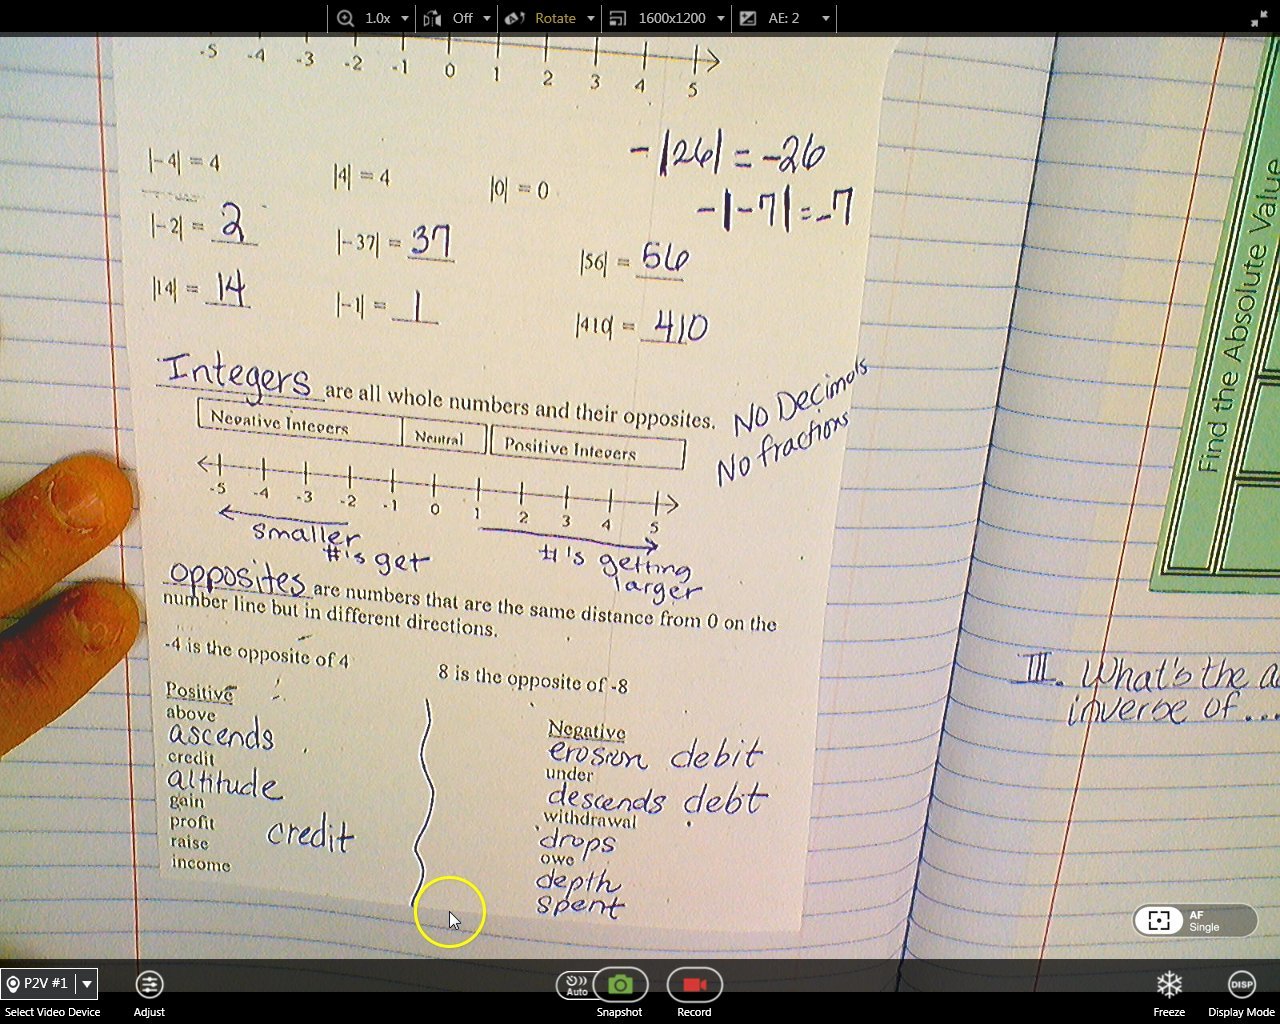 1.0x Off Rotate 1600x1200 AE: 2
-5 -4 -3 -2 -1 0 1 2 3 4 5
|-4| = 4 |4| = 4 |0| = 0 -|26| = -26
-|-7| = -7
|-2| = 2 |-37| = 37 |56| = 56
|14| = 14 |-1| = 1 |410| = 410
Integers are all whole numbers and their opposites. No Decimals
No fractions
Negative Integers Neutral Positive Integers
-5 -4 -3 -2 -1 0 1 2 3 4 5
smaller
#'s get
#'s getting
larger
opposites are numbers that are the same distance from 0 on the
number line but in different directions.
-4 is the opposite of 4 8 is the opposite of -8
Positive
above
ascends
credit
altitude
gain
profit
credit
raise
income
Negative
erosion debit
under
descends debt
withdrawal
drops
owe
depth
spent
Find the Absolute Value
III. What's the a
inverse of...
AF
Single
P2V #1
Select Video Device Adjust Auto Snapshot Record Freeze DISP Display Mode